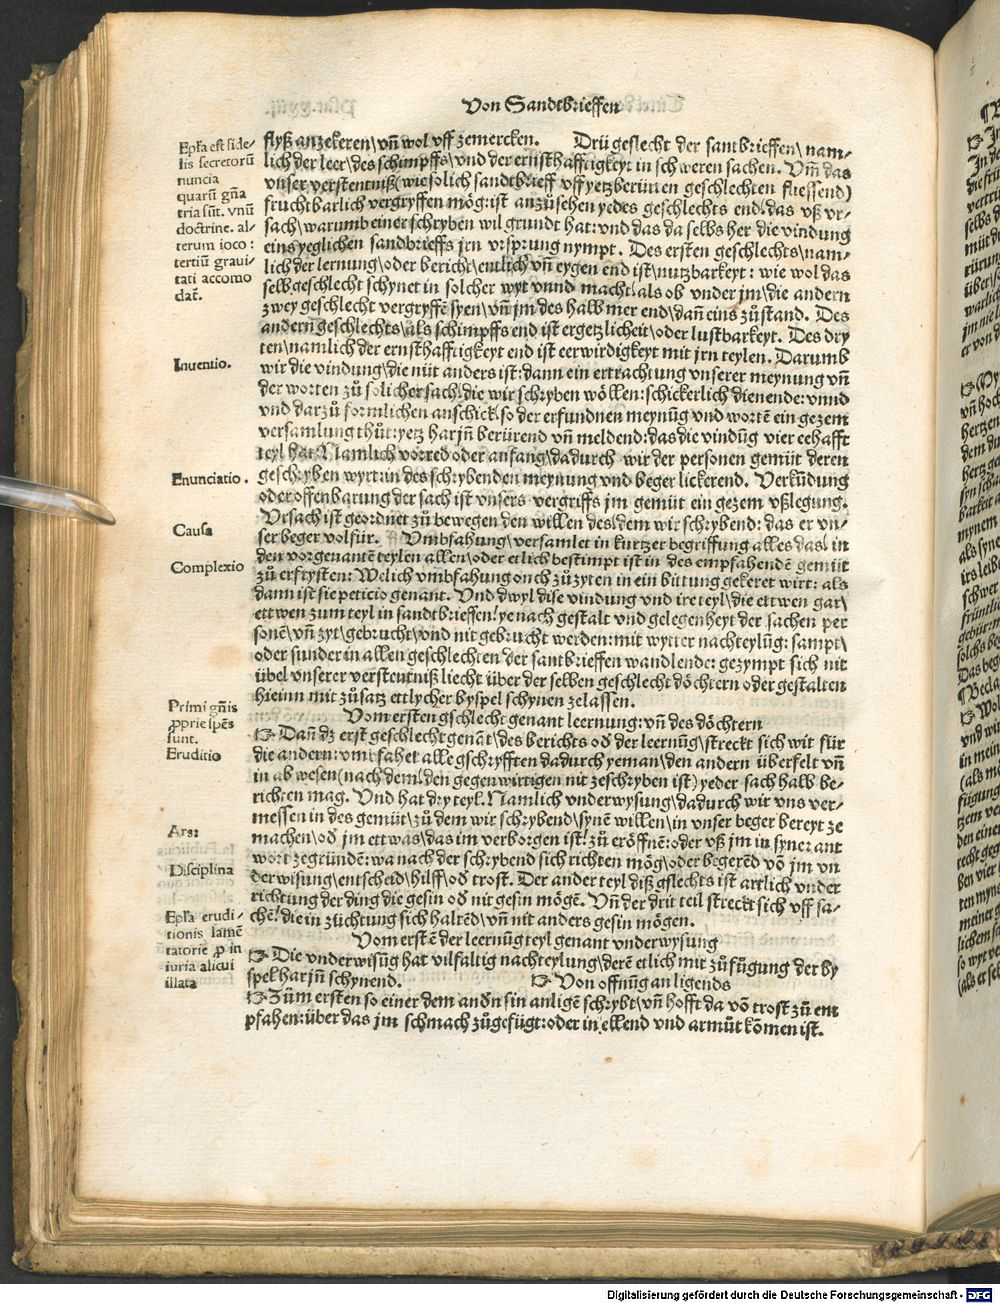 Von Sandtbrieffen
Ep̄ła est fide⸗
lis secretorū
nuncia
quarū gn̄a
tria sūt. vnū
doctrine. al⸗
terum ioco:
tertiū graui⸗
tati accomo
dat̄.
flyß anzekeren\ vñ wol vff zemercken. Drü geslecht der santbrieffen\ nam⸗
lich der leer\ des schimpffs\ vnd der ernsthafftigkeyt in schweren sachen. Vm̄ das
vnser verstentniß (wie solich sandtbrieff vff yetzberürten geschlechten fliessend)
fruchtbarlich vergryffen mög: ist anzůsehen yedes geschlechts end\ das vß vr⸗
sach\ warumb einer schryben wil grundt hat: vnd das da selbs her die vindung
eins yeglichen sandbrieffs jrn vrsprung nympt. Des ersten geschlechts\ nam⸗
lich der lernung\ oder bericht\ entlich vñ eygen end ist\ nutzbarkeyt: wie wol das
selb geschlecht schynet in solcher wyt vnnd macht\ als ob vnder jm\ die andern
zwey geschlecht vergryffē syen\ vñ jm des halb mer end\ dañ eins zůstand. Des
andern geschlechts\ als schimpffs end ist ergetzlicheit\ oder lustbarkeyt. Des dry
ten\ namlich der ernsthafftigkeyt end ist eerwirdigkeyt mit jrn teylen. Darumb
Inuentio.
wir die vindung\ die nüt anders ist: dann ein ertrachtung vnserer meynung vñ
der worten zů solicher sach\ die wir schryben wöllen: schickerlich dienende: vnnd
vnd darzů formlichen anschick\ so der erfundnen meynūg vnd wortē ein gezem
versamlung thůt: yetz harjn̄ berürend vñ meldend: das die vindūg vier eehafft
teyl hat. Namlich vorred oder anfang\ dadurch wir der personen gemüt deren
Enunciatio.
geschryben wyrt: in des schrybenden meynung vnd beger lickerend. Verkündung
oder offenbarung der sach ist vnsers vergriffs jm gemüt ein gezem vßlegung.
Causa
Vrsach ist geordnet zů bewegen den willen des\ dem wir schrybend: das er vn⸗
ser beger volfür. Vmbfahung\ versamlet in kurtzer begriffung alles das\ in
Complexio
den vorgenantē teylen allen\ oder etlich bestimpt ist in des empfahendē gemüt
zů erfrysten: Welich vmbfahung onch zůzyten in ein bittung gekeret wirt: als
dann ist sie peticio genant. Vnd dwyl dise vindung vnd ire teyl\ die ettwen gar\
ettwen zum teyl in sandtbrieffen! ye nach gestalt vnd gelegenheyt der sachen per
sonē\ vñ zyt\ gebrucht\ vnd nit gebrucht werden: mit wytter nachteylūg: sampt\
oder sunder in allen geschlechten der santbrieffen wandlende: gezympt sich nit
übel vnserer verstentniß liecht über der selben geschlecht döchtern oder gestalten
hieinn mit zůsatz ettlycher byspel schynen zelassen.
Primi gn̄is
ꝓprie spēs
sunt.
Eruditio
Vom ersten gschlecht genant leernung: vñ des döchtern
☞ Dañ dz erst geschlecht genāt\ des berichts od̄ der leernūg\ streckt sich wit für
die andern: vmbfahet alle gschryfften dadurch yeman\ den andern überfelt vñ
in abwesen (nach dem\ den gegenwirtigen nit zeschryben ist) yeder sach halb be⸗
richten mag. Vnd hat dry teyl. Namlich vnderwysung\ dadurch wir vns ver⸗
messen in des gemüt\ zů dem wir schrybend\ synē willen\ in vnser beger bereyt ze
Ars:
machen\ od̄ jm ettwas\ das im verborgen ist! zů eröffnē: oder vß jm in syner ant
wort zegründē: wa nach der schrybend sich richten mög\ oder begerēd vō jm vn
Disciplina
derwisung\ entscheid\ hilff\ od̄ trost. Der ander teyl diß gslechts ist artlich vnder
richtung der ding die gesin od̄ nit gesin mögē. Vñ der drit teil streckt sich vff sa⸗
Ep̄ła erudi⸗
tionis lamē
tatorie ꝓ in
iuria alicui
illata
chē! die in züchtung sich haltēd\ vñ nit anders gesin mögen.
Vom erstē der leernūg teyl genant vnderwysūng
☞ Die vnderwisūg hat vilfaltig nachteylung\ derē etlich mit zůfügung der by
spel harjn̄ schynend. ☞ Von offnūg an ligends
☞ Zům ersten so einer dem and̄n sin anligē schrybt\ vñ hofft da vō trost zů em
pfahen: über das jm schmach zůgefügt: oder in ellend vnd armůt kōmen ist.
Digitalisierung gefördert durch die Deutsche Forschungsgemeinschaft - DFG